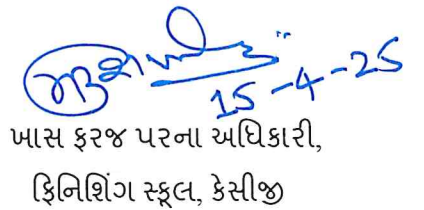 15-4-25
ખાસ ફરજ પરના અધિકારી,
ફિનિશિંગ સ્કૂલ, કેસીજી